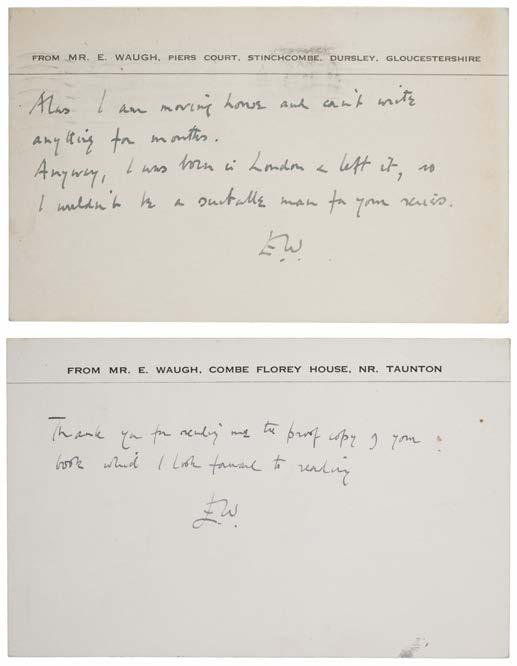 FROM MR. E. WAUGH, PIERS COURT, STINCHCOMBE, DURSLEY, GLOUCESTERSHIRE
Alas I am moving house and can't write
anything for months.
Anyway, I was born in London & left it, so
I wouldn't be a suitable man for your series.
E.W.
FROM MR. E. WAUGH, COMBE FLOREY HOUSE, NR. TAUNTON
Thank you for sending me the proof copy of your
book which I look forward to reading
E.W.